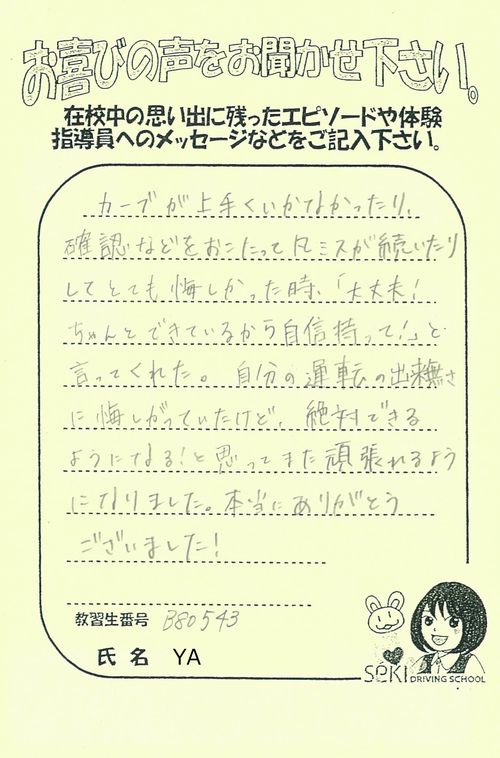 お喜びの声をお聞かせ下さい。
在校中の思い出に残ったエピソードや体験
指導員へのメッセージなどをご記入下さい。
カーブが上手くいかなかったり、
確認などをおこたって凡ミスが続いたり
してとても悔しかった時、「大丈夫!
ちゃんとできているから自信持って!」と
言ってくれた。自分の運転の出来無さ
に悔しがっていたけど、絶対できる
ようになる!と思ってまた頑張れるよう
になりました。本当にありがとう
ございました!
教習生番号 B80543
氏名 YA
SEKI DRIVING SCHOOL